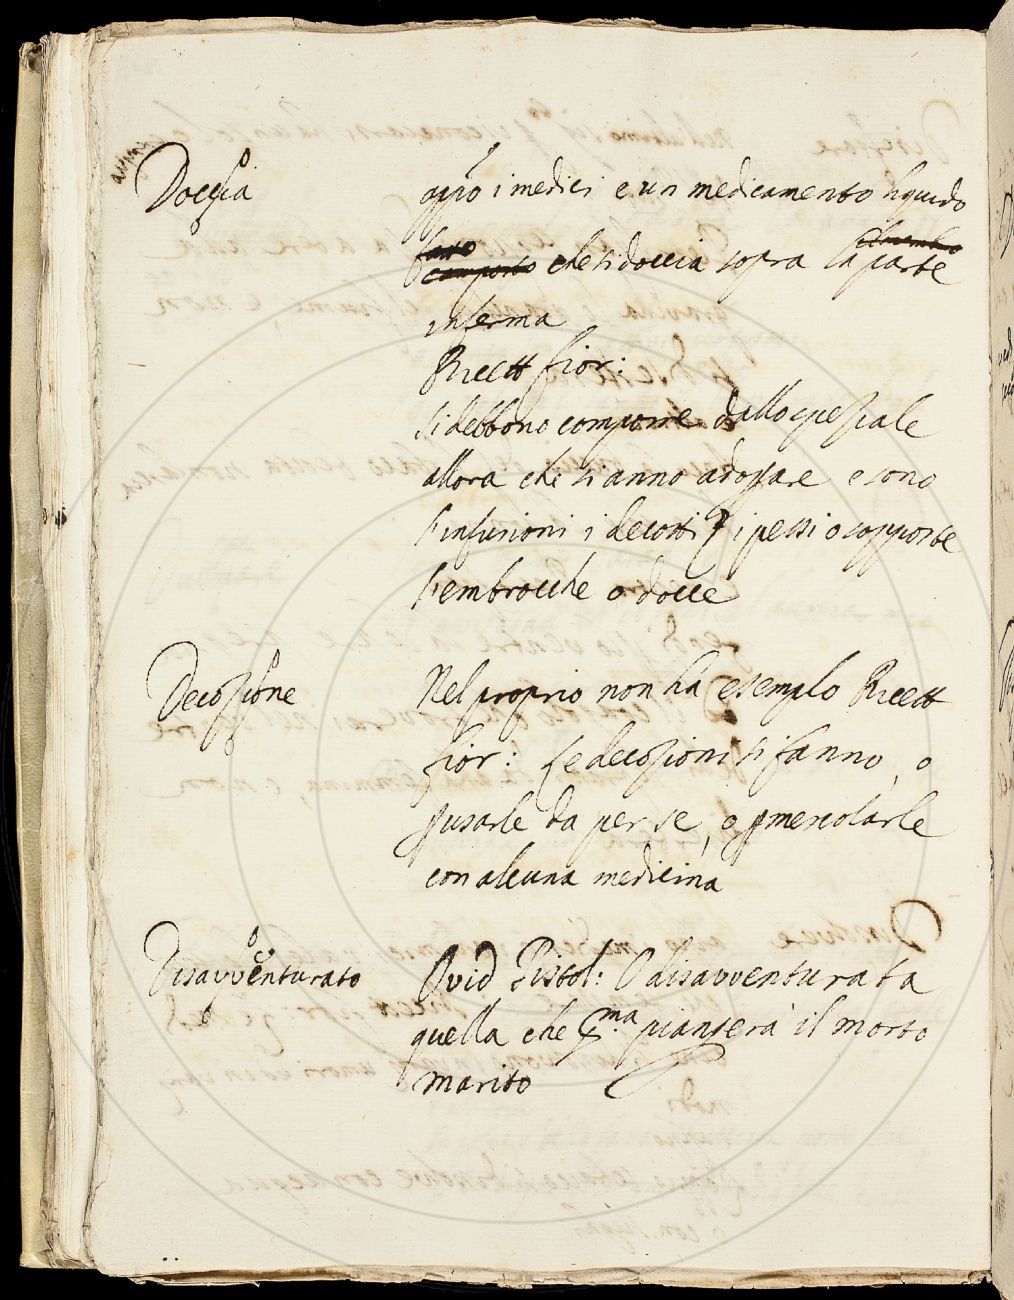 Doccia
appro i medici e un medicamento liquido
fatto
composto che si doccia sopra la parte
inferma
Ricett fior:
si debbono comporre dallo speziale
allora che si anno adoprare e sono
l'infusioni i decotti, i pessi o sopposte
l'embrocche o docce
Decozione
Nel proprio non ha esemplo Ricett
fior: Le decozioni si fanno, o
p usarle da per se, o p mescolarle
con alcuna medicina
Disavventurato
Ovid Pistol: O disavventurata
quella che pma piangerà il morto
marito